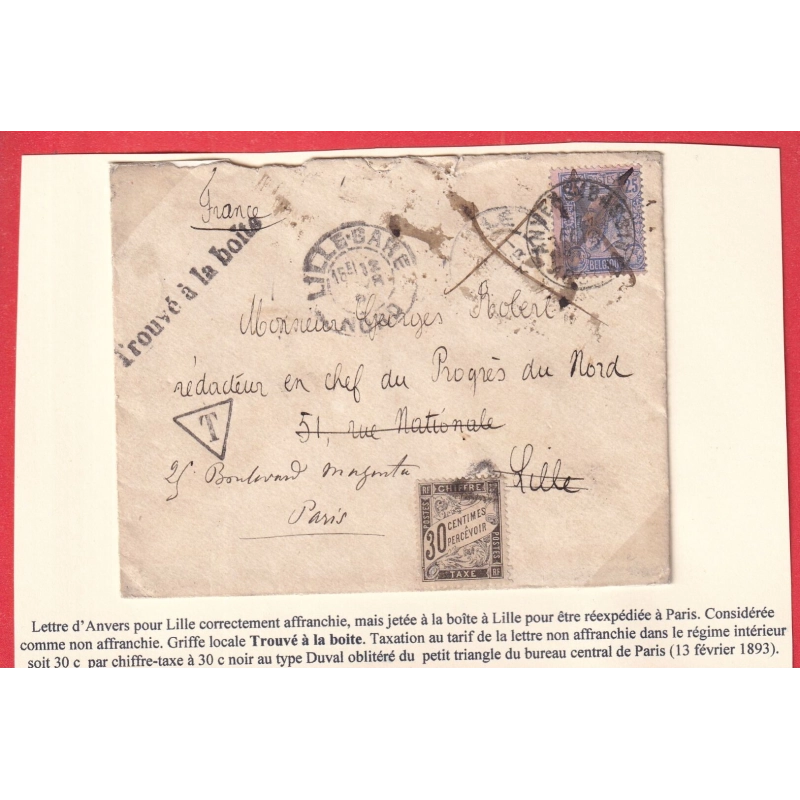 France
Trouvé à la boîte
LILLE-GARE
NORD
25
ANVERS
BELGIQUE
Monsieur Georges Robert
rédacteur en chef du Progrès du Nord
51, rue Nationale
Lille
T
25 Boulevard Magenta
Paris
RF CHIFFRE
POSTES
30 CENTIMES
A PERCEVOIR
POSTES
TAXE RF
Lettre d'Anvers pour Lille correctement affranchie, mais jetée à la boîte à Lille pour être réexpédiée à Paris. Considérée
comme non affranchie. Griffe locale Trouvé à la boite. Taxation au tarif de la lettre non affranchie dans le régime intérieur
soit 30 c par chiffre-taxe à 30 c noir au type Duval oblitéré du petit triangle du bureau central de Paris (13 février 1893).